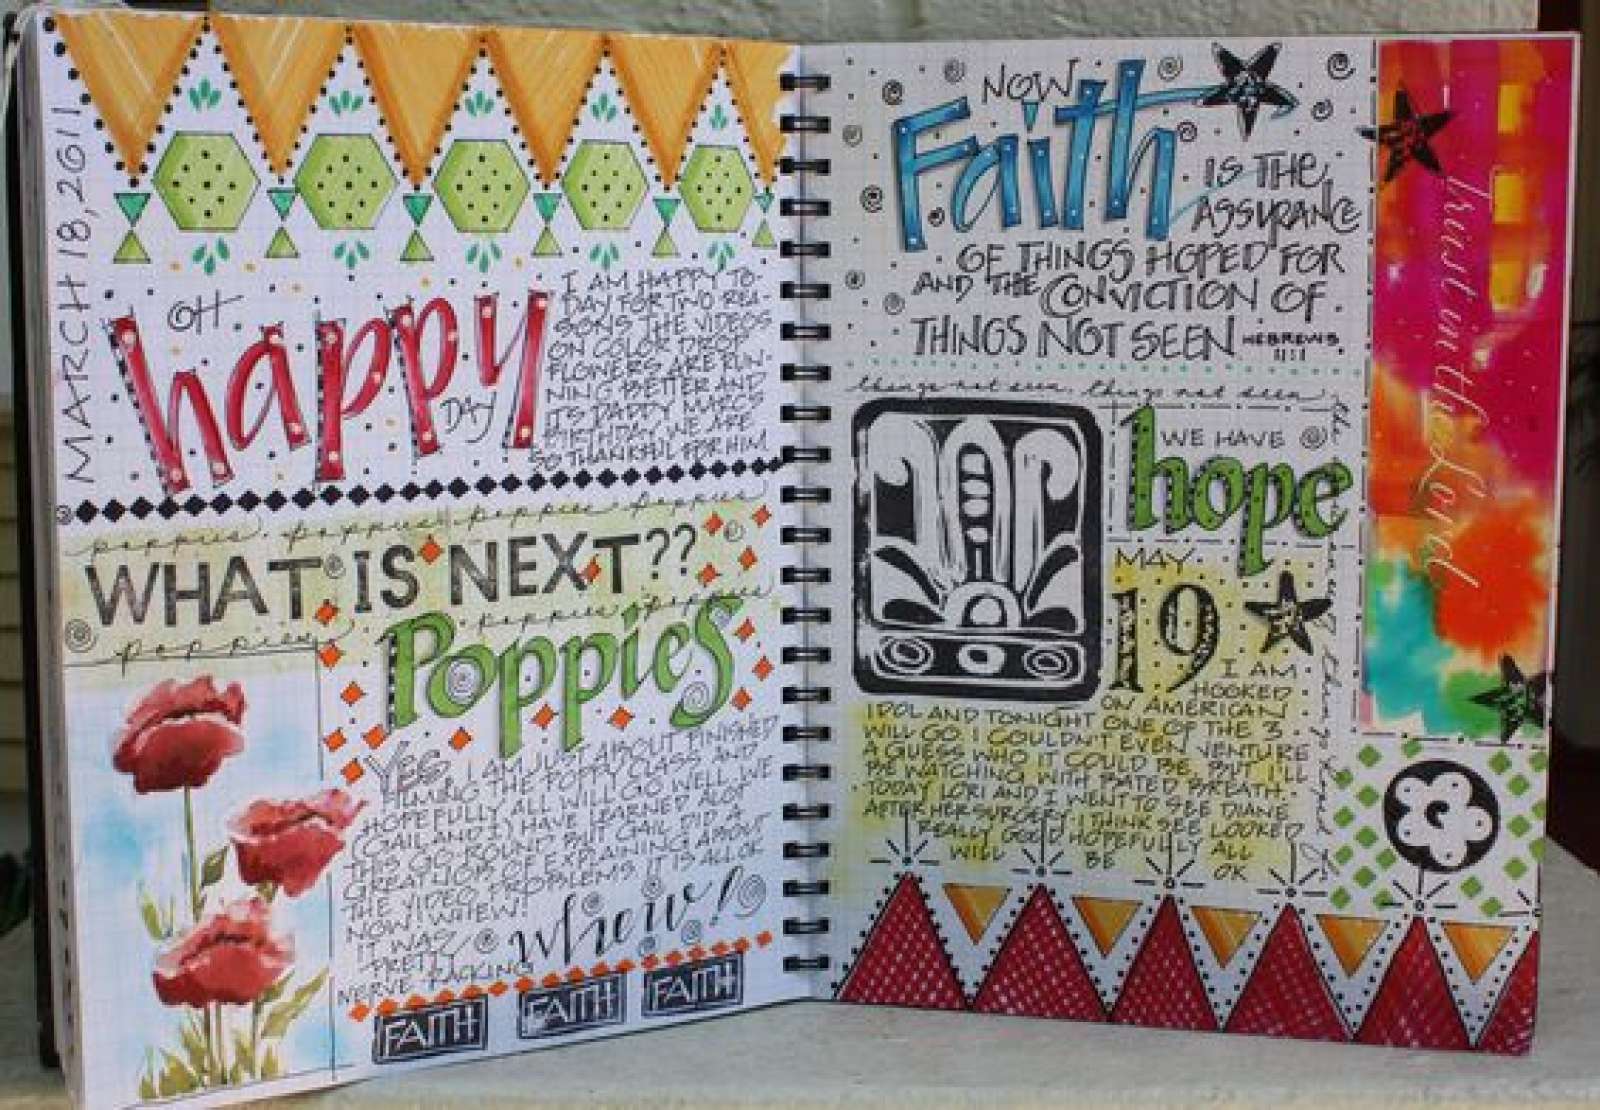 MARCH 18, 2011
OH
happy
DAY
I AM HAPPY TO-
DAY FOR TWO REA-
SONS THE VIDEOS
ON COLOR DROP
FLOWERS ARE RUN-
NING BETTER AND
IT'S DADDY MARC'S
BIRTHDAY. WE ARE
SO THANKFUL FOR HIM
poppies. poppies poppies poppies
WHAT IS NEXT??
poppies poppies
poppies
Poppies
YES, I AM JUST ABOUT FINISHED
FILMING THE POPPY CLASS AND
HOPEFULLY ALL WILL GO WELL. WE
(GAIL AND I) HAVE LEARNED ALOT
THIS GO ROUND BUT GAIL DID A
GREAT JOB OF EXPLAINING ABOUT
THE VIDEO PROBLEMS. IT IS ALL OK
NOW! WHEW!
IT WAS
PRETTY
NERVE RACKING
whew!
FAITH
FAITH
FAITH
NOW
Faith
IS THE
ASSURANCE
OF THINGS HOPED FOR
AND THE CONVICTION OF
THINGS NOT SEEN HEBREWS
11:1
things not seen, things not seen
WE HAVE
hope
MAY
19
I AM
HOOKED
ON AMERICAN
IDOL AND TONIGHT ONE OF THE 3
WILL GO. I COULDN'T EVEN VENTURE
A GUESS WHO IT COULD BE, BUT I'LL
BE WATCHING WITH BATED BREATH.
TODAY LORI AND I WENT TO SEE DIANE
AFTER HER SURGERY. I THINK SEE LOOKED
REALLY GOOD HOPEFULLY ALL
WILL BE OK
trust in the Lord